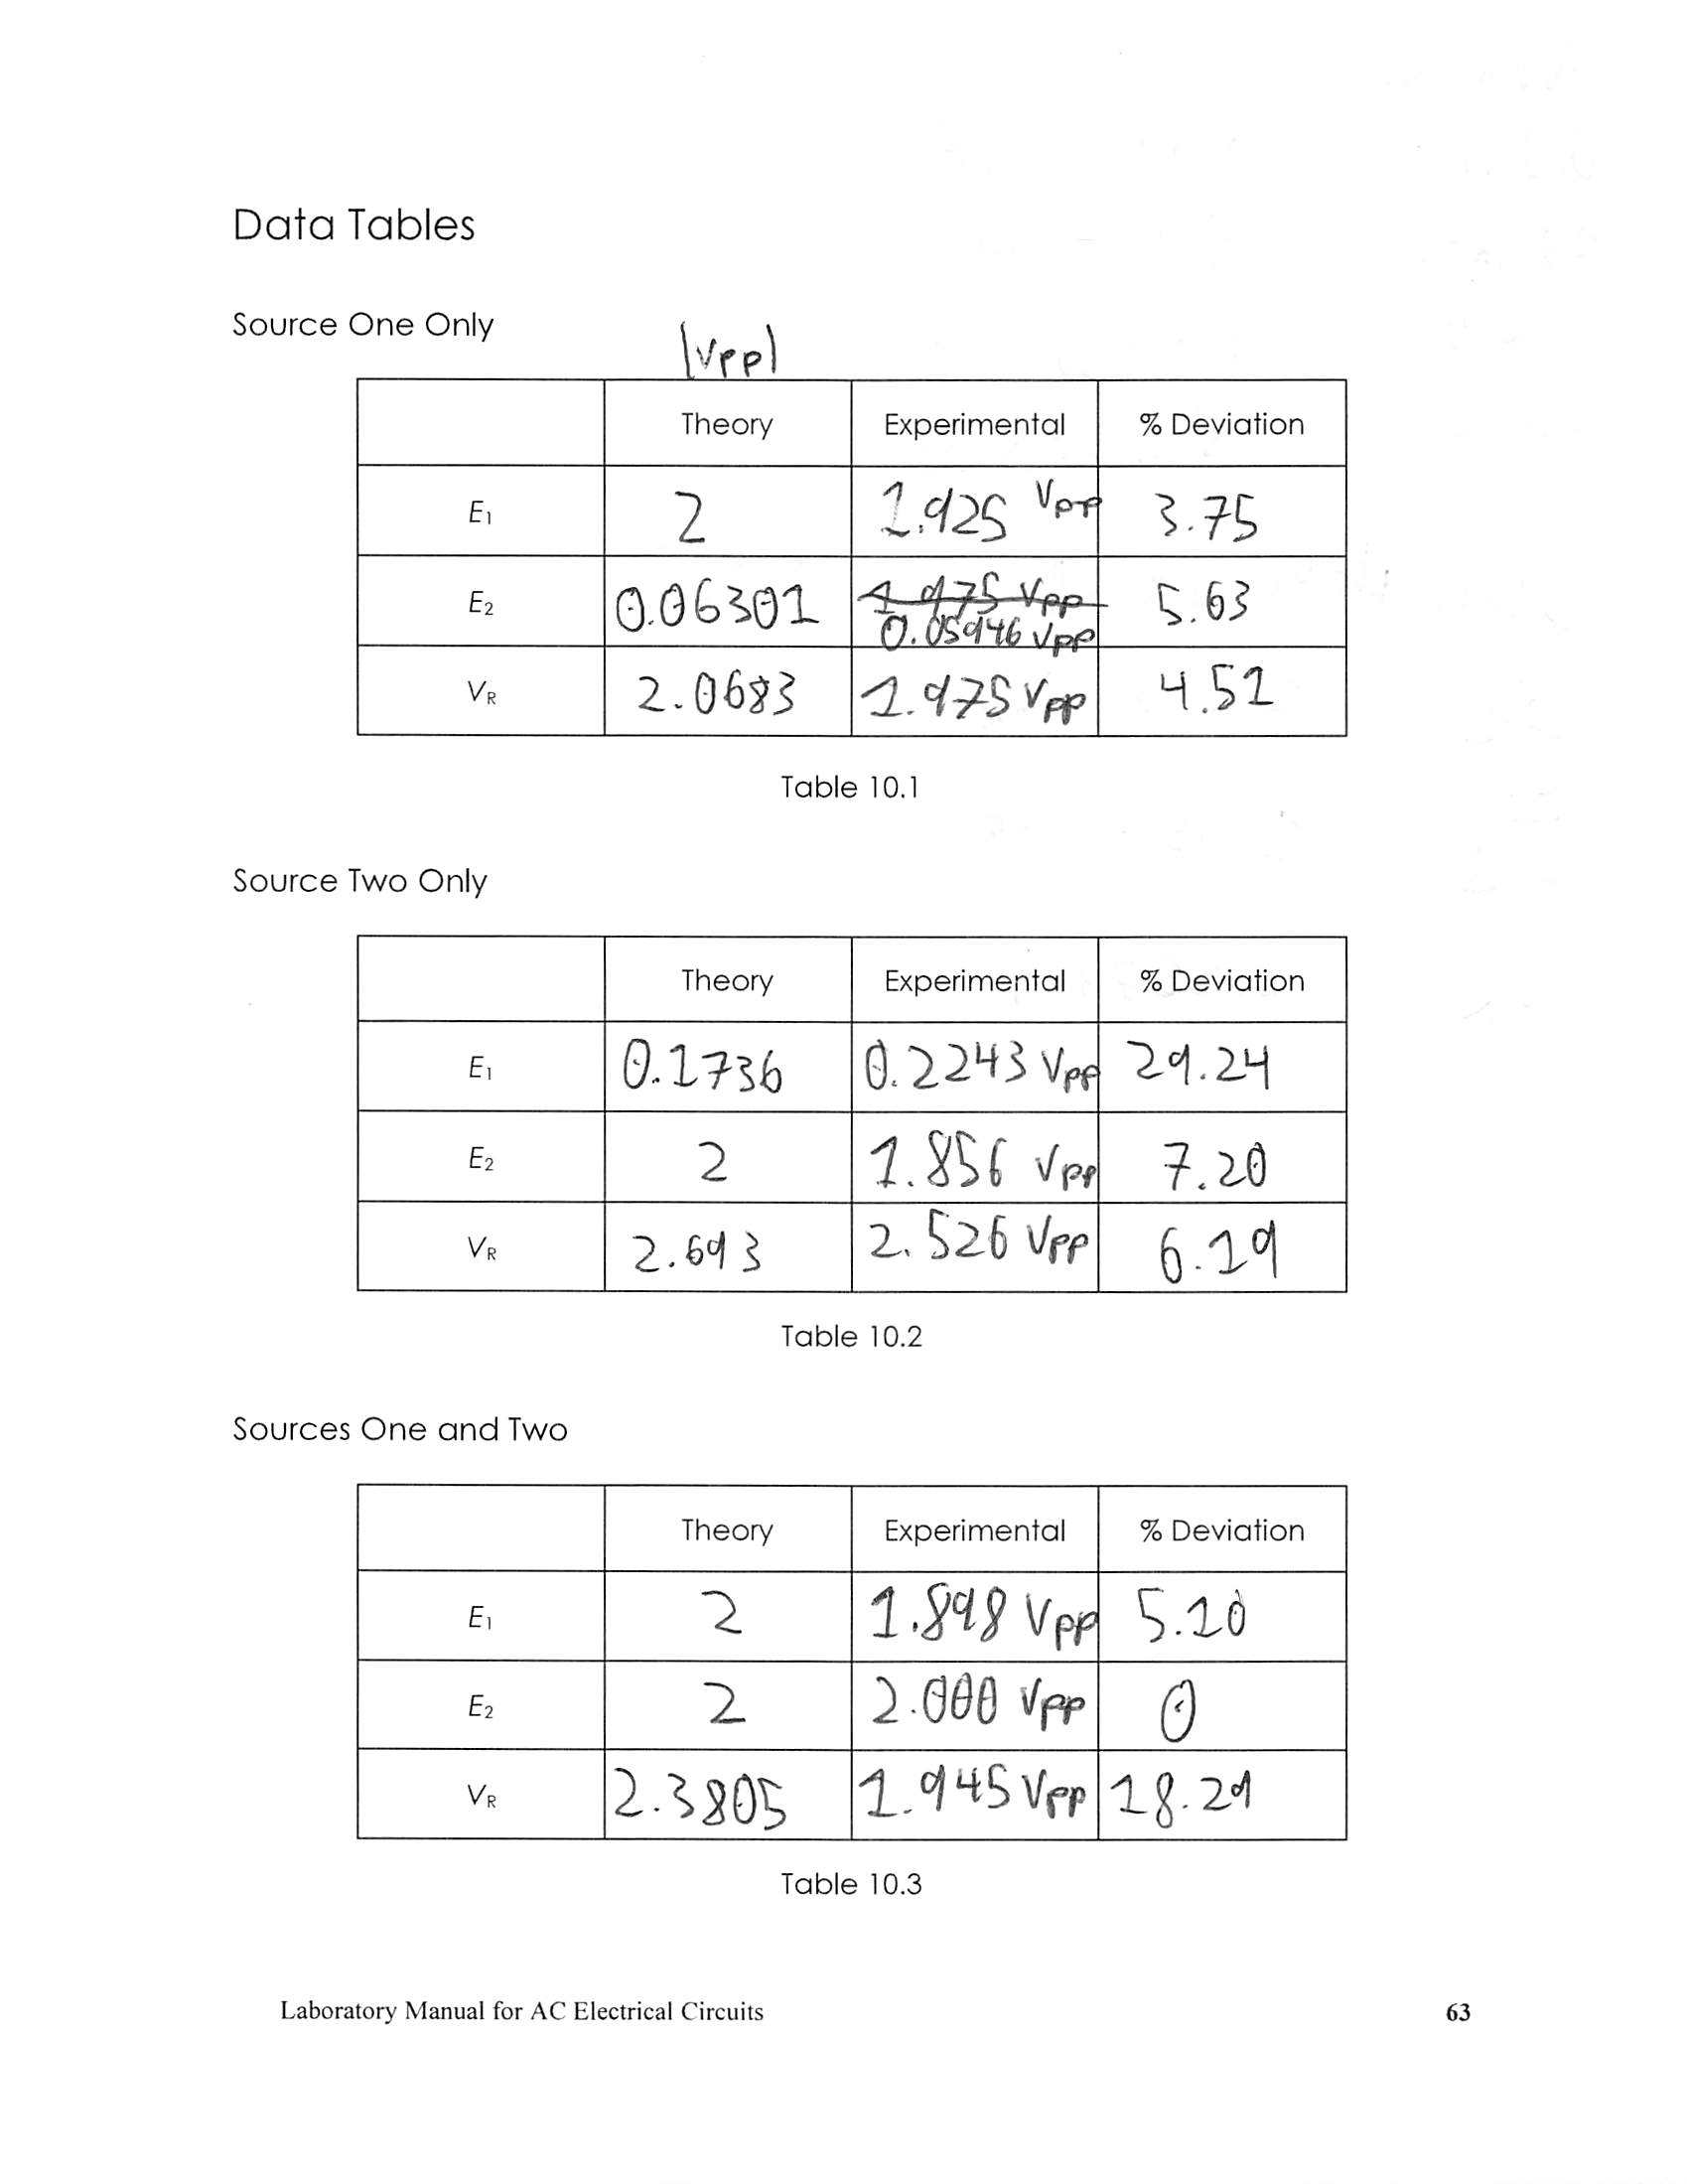 Data Tables
Source One Only
|Vpp|
Theory Experimental % Deviation
E1 2 1.925 Vpp 3.75
E2 0.06301 1.975 Vpp 5.63
0.05946 Vpp
VR 2.0683 1.975 Vpp 4.51
Table 10.1
Source Two Only
Theory Experimental % Deviation
E1 0.1736 0.2243 Vpp 29.24
E2 2 1.856 Vpp 7.20
VR 2.693 2.526 Vpp 6.19
Table 10.2
Sources One and Two
Theory Experimental % Deviation
E1 2 1.898 Vpp 5.10
E2 2 2.000 Vpp 0
VR 2.3805 1.945 Vpp 18.29
Table 10.3
Laboratory Manual for AC Electrical Circuits 63